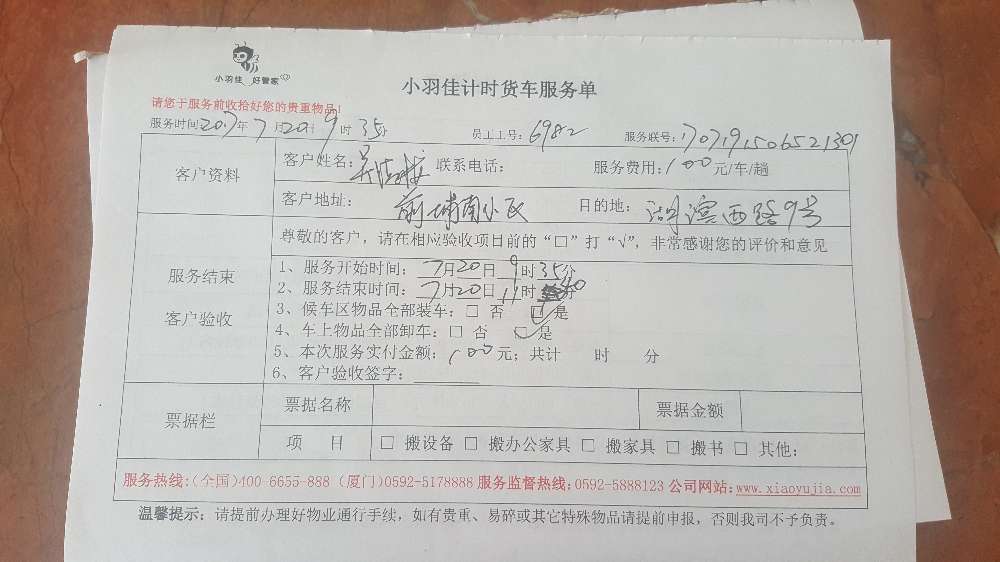 小羽佳 好管家
小羽佳计时货车服务单
请您于服务前收拾好您的贵重物品!
服务时间2017年7月20日9时35分 员工工号:6982 服务联号:1707191506521301
客户资料
客户姓名:吴 联系电话: 服务费用:100元/车/趟
客户地址: 前埔南小区 目的地: 湖滨西路9号
服务结束
客户验收
尊敬的客户，请在相应验收项目前的“□”打“√”，非常感谢您的评价和意见
1、服务开始时间: 7月20日9时35分
2、服务结束时间: 7月20日11时40分
3、候车区物品全部装车: □ 否 ☑ 是
4、车上物品全部卸车: □ 否 ☑ 是
5、本次服务实付金额: 100元; 共计 时 分
6、客户验收签字:
票据栏
票据名称 票据金额
项 目 □ 搬设备 □ 搬办公家具 □ 搬家具 □ 搬书 □ 其他:
服务热线:(全国)400-6655-888 (厦门)0592-5178888 服务监督热线:0592-5888123 公司网站:www.xiaoyujia.com
温馨提示: 请提前办理好物业通行手续，如有贵重、易碎或其它特殊物品请提前申报，否则我司不予负责。